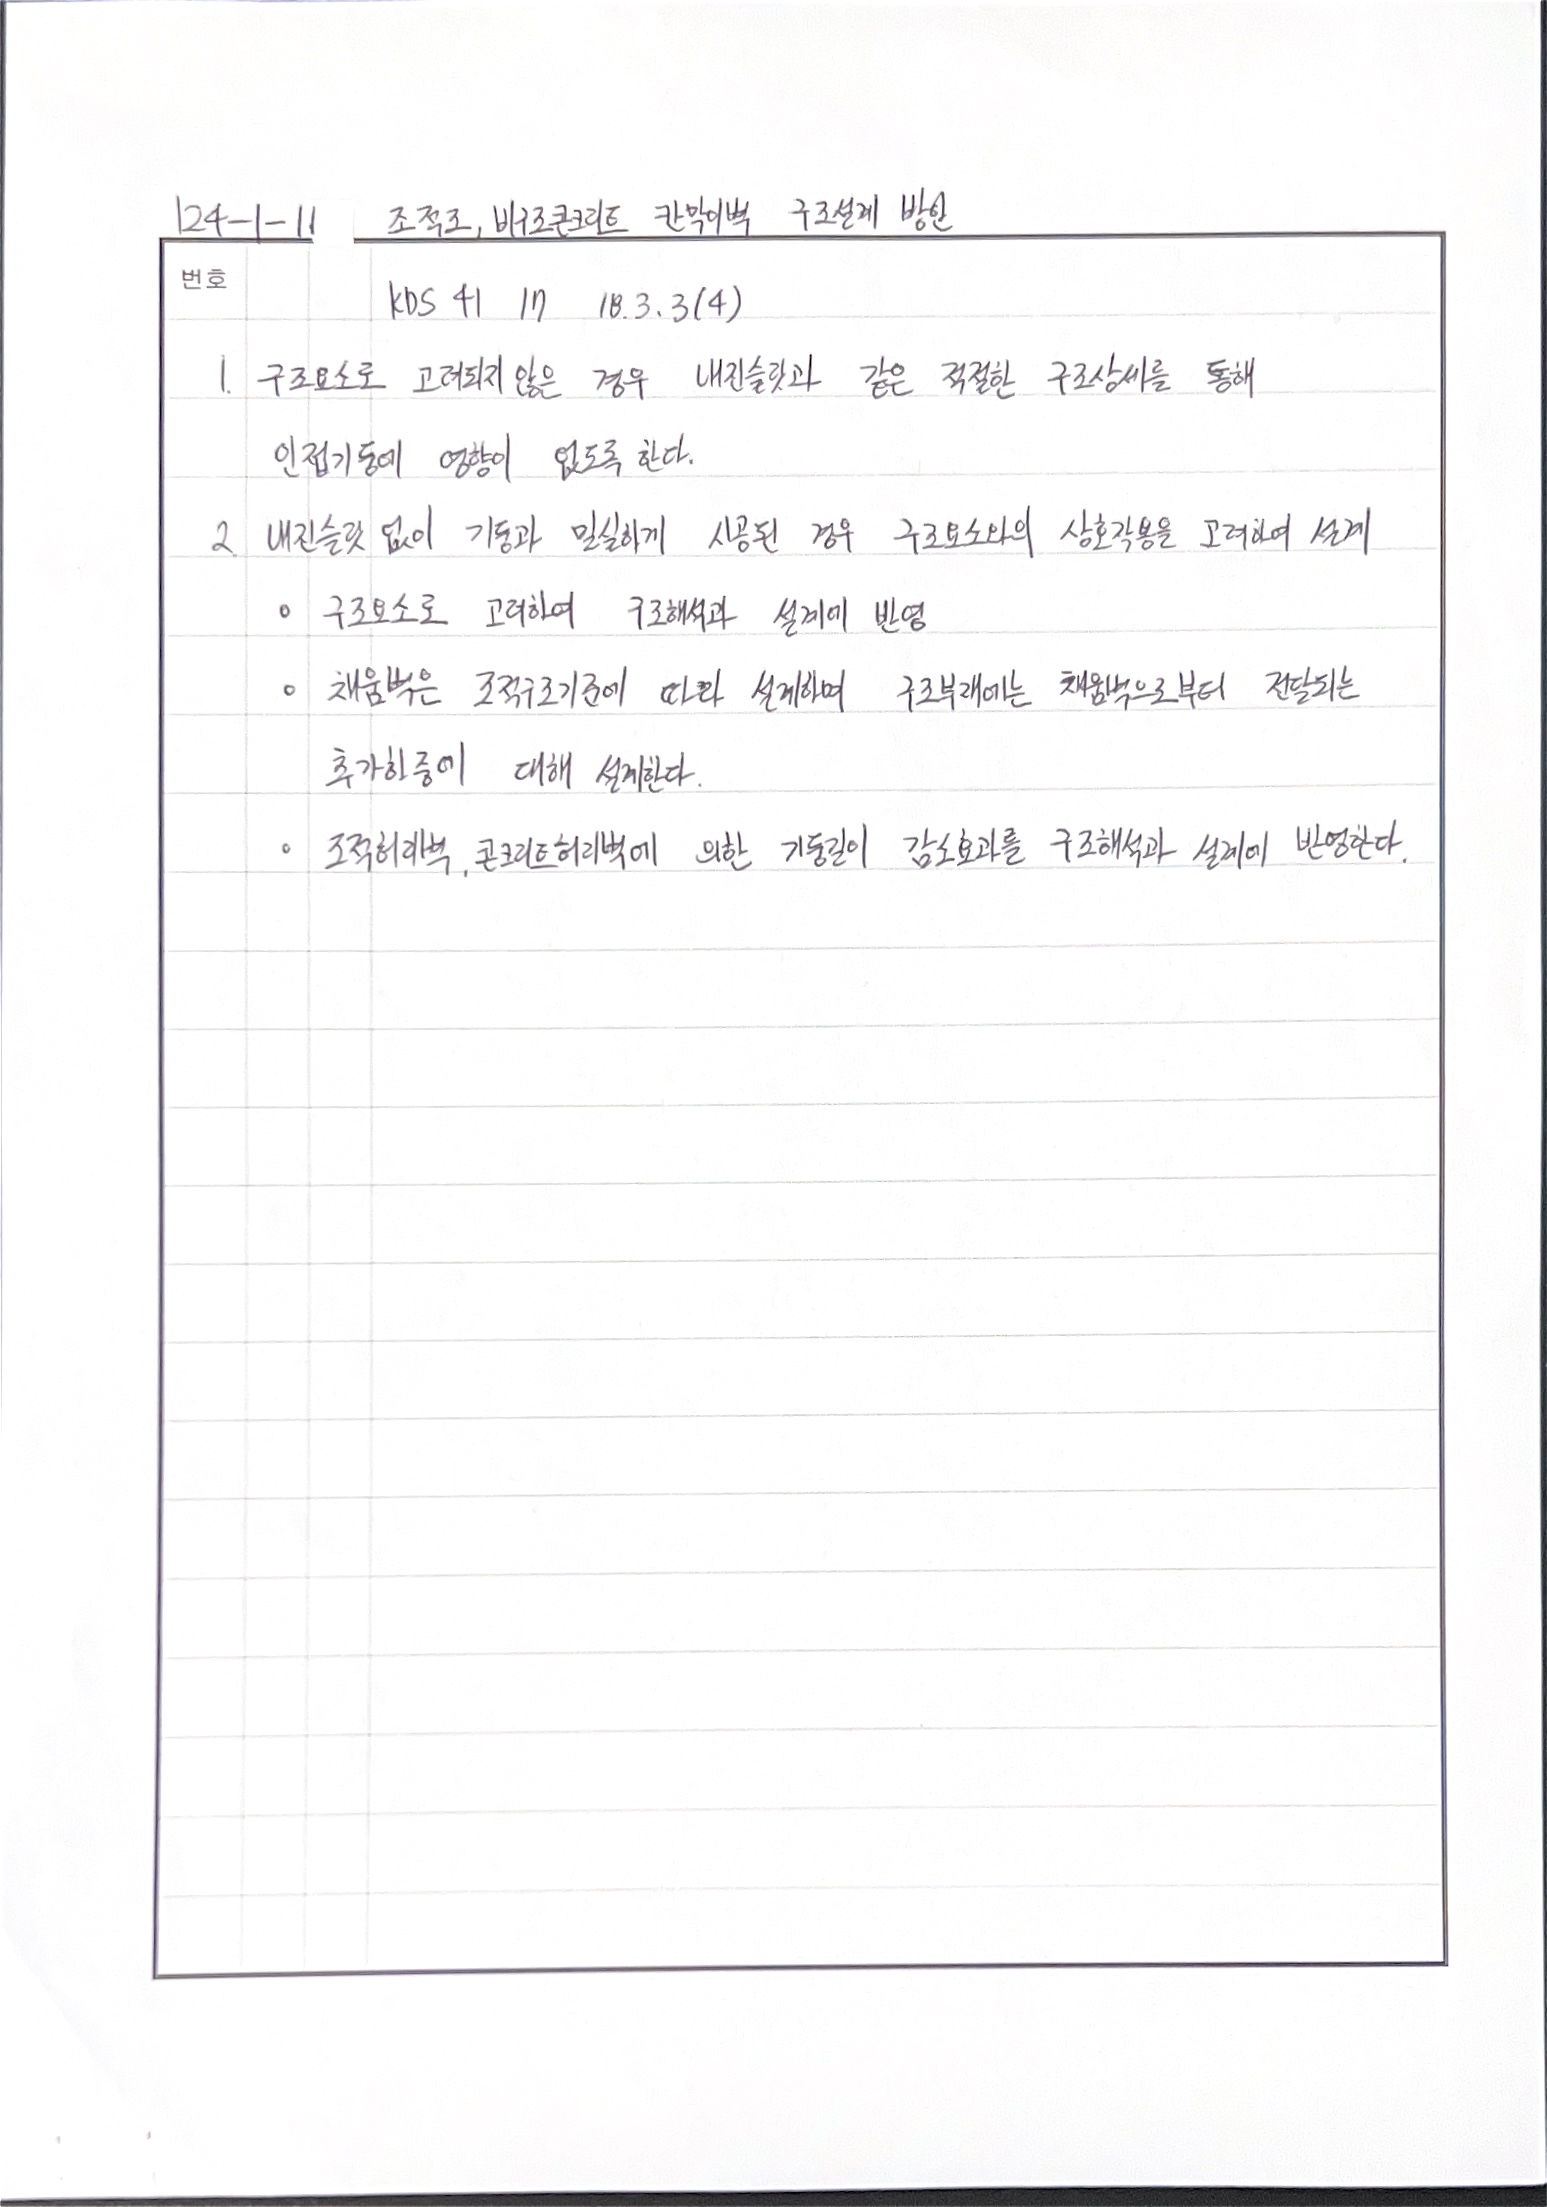 124-1-11 조적조, 비구조콘크리트 칸막이벽 구조설계 방안
번호
KDS 41 17 18.3.3(4)
1. 구조요소로 고려되지 않은 경우 내진슬릿과 같은 적절한 구조상세를 통해
인접기둥에 영향이 없도록 한다.
2. 내진슬릿 없이 기둥과 밀실하게 시공된 경우 구조요소와의 상호작용을 고려하여 설계
◦ 구조요소로 고려하여 구조해석과 설계에 반영
◦ 채움벽은 조적구조기준에 따라 설계하며 구조부재에는 채움벽으로부터 전달되는
추가하중에 대해 설계한다.
◦ 조적허리벽, 콘크리트허리벽에 의한 기둥길이 감소효과를 구조해석과 설계에 반영한다.